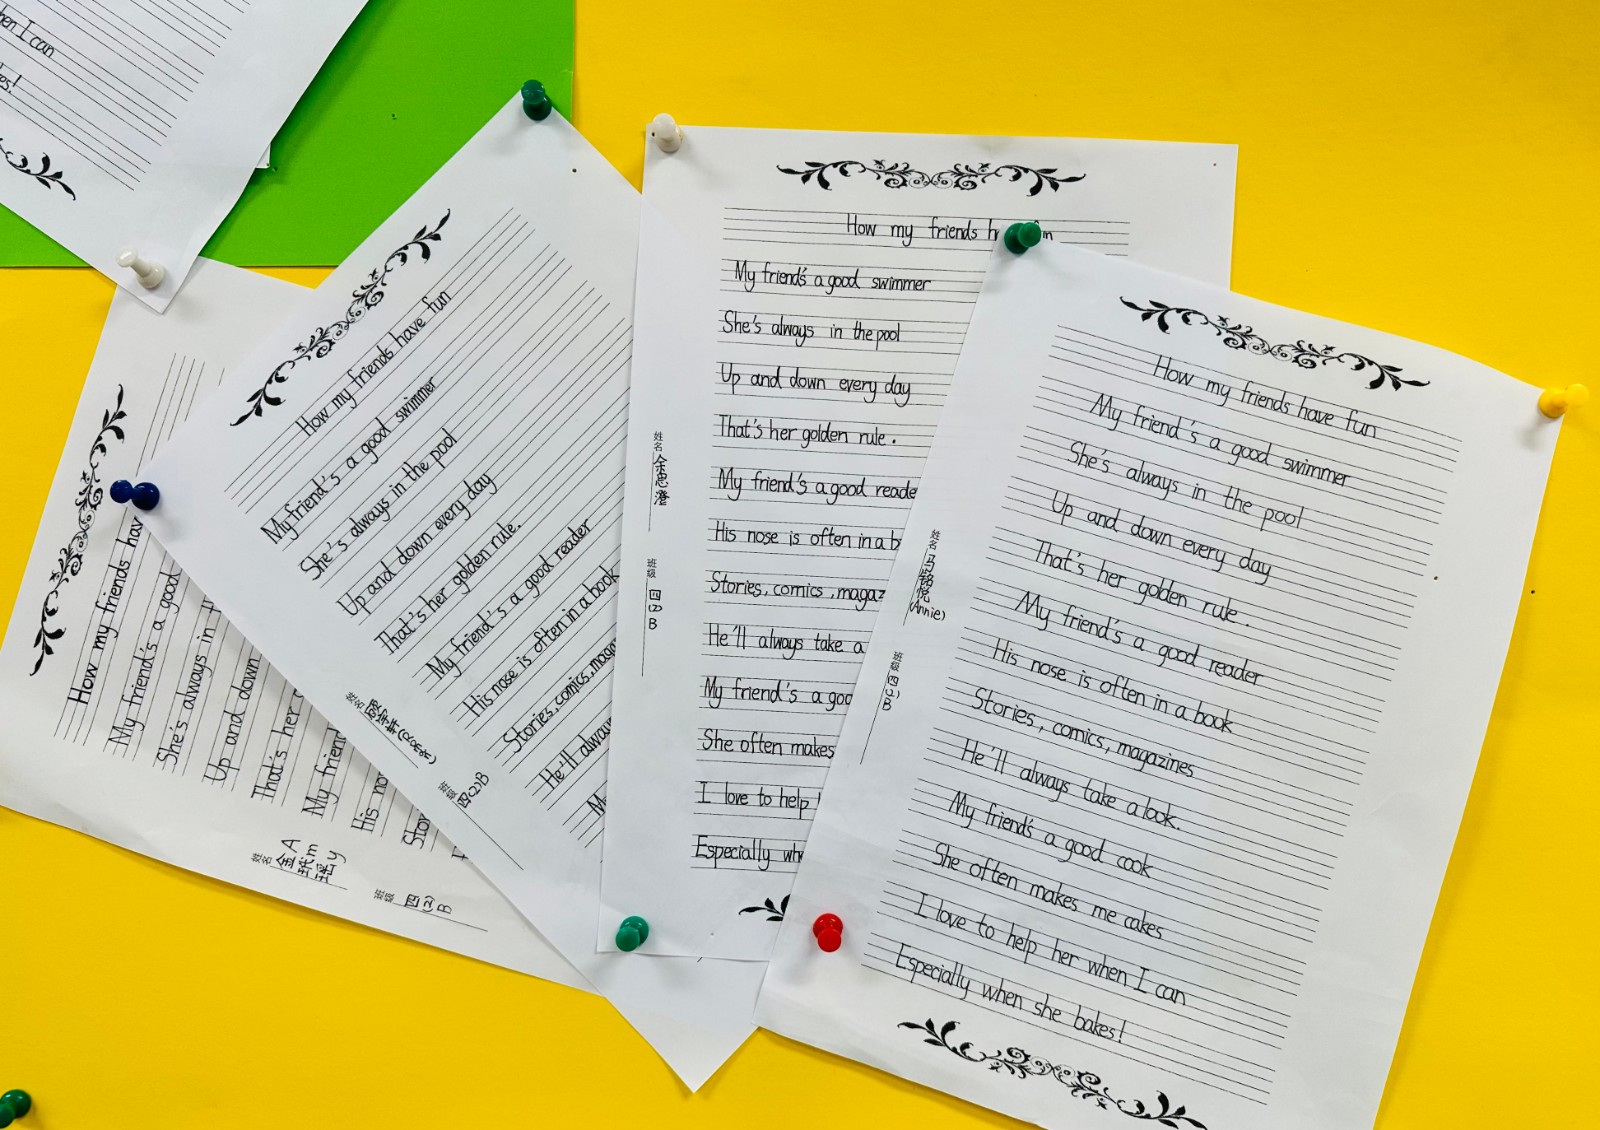 hen I can
How my friends hav
My friend's a good
She's always in th
Up and down
That's her
My friend
His no
Stor
姓名 金玳瑶 Amy
班级 四(2)B
How my friends have fun
My friend's a good swimmer
She's always in the pool
Up and down every day
That's her golden rule.
My friend's a good reader
His nose is often in a book
Stories, comics, maga
He'll alway
M
姓名
班级 四(2)B
How my friends h
My friend's a good swimmer
She's always in the pool
Up and down every day
That's her golden rule.
My friend's a good reade
His nose is often in a b
Stories, comics, magaz
He'll always take a
My friend's a goo
She often makes
I love to help
Especially wh
姓名 余思澄
班级 四(2)B
How my friends have fun
My friend's a good swimmer
She's always in the pool
Up and down every day
That's her golden rule.
My friend's a good reader
His nose is often in a book
Stories, comics, magazines
He'll always take a look.
My friend's a good cook
She often makes me cakes
I love to help her when I can
Especially when she bakes!
姓名 马铭悦 (Annie)
班级 四(2)B